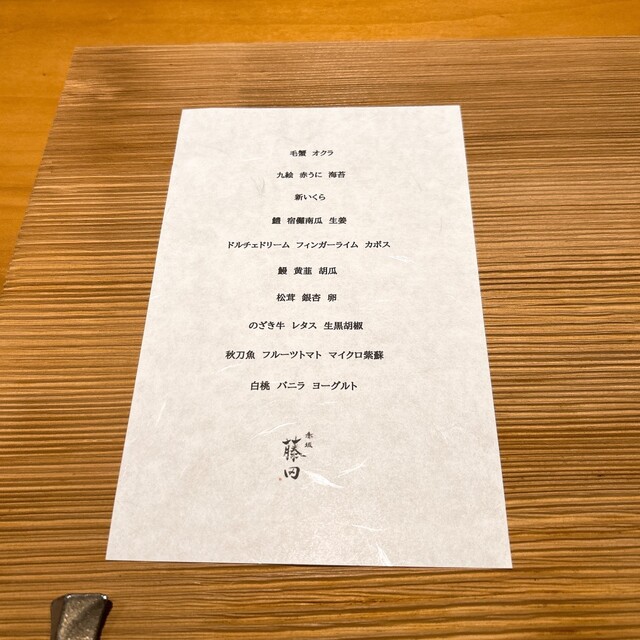 毛蟹 オクラ
九絵 赤うに 海苔
新いくら
鱧 宿儺南瓜 生姜
ドルチェドリーム フィンガーライム カボス
鰻 黄韮 胡瓜
松茸 銀杏 卵
のざき牛 レタス 生黒胡椒
秋刀魚 フルーツトマト マイクロ紫蘇
白桃 バニラ ヨーグルト
赤坂
藤田